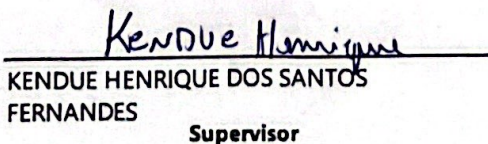 Kendue Henrique
KENDUE HENRIQUE DOS SANTOS
FERNANDES
Supervisor